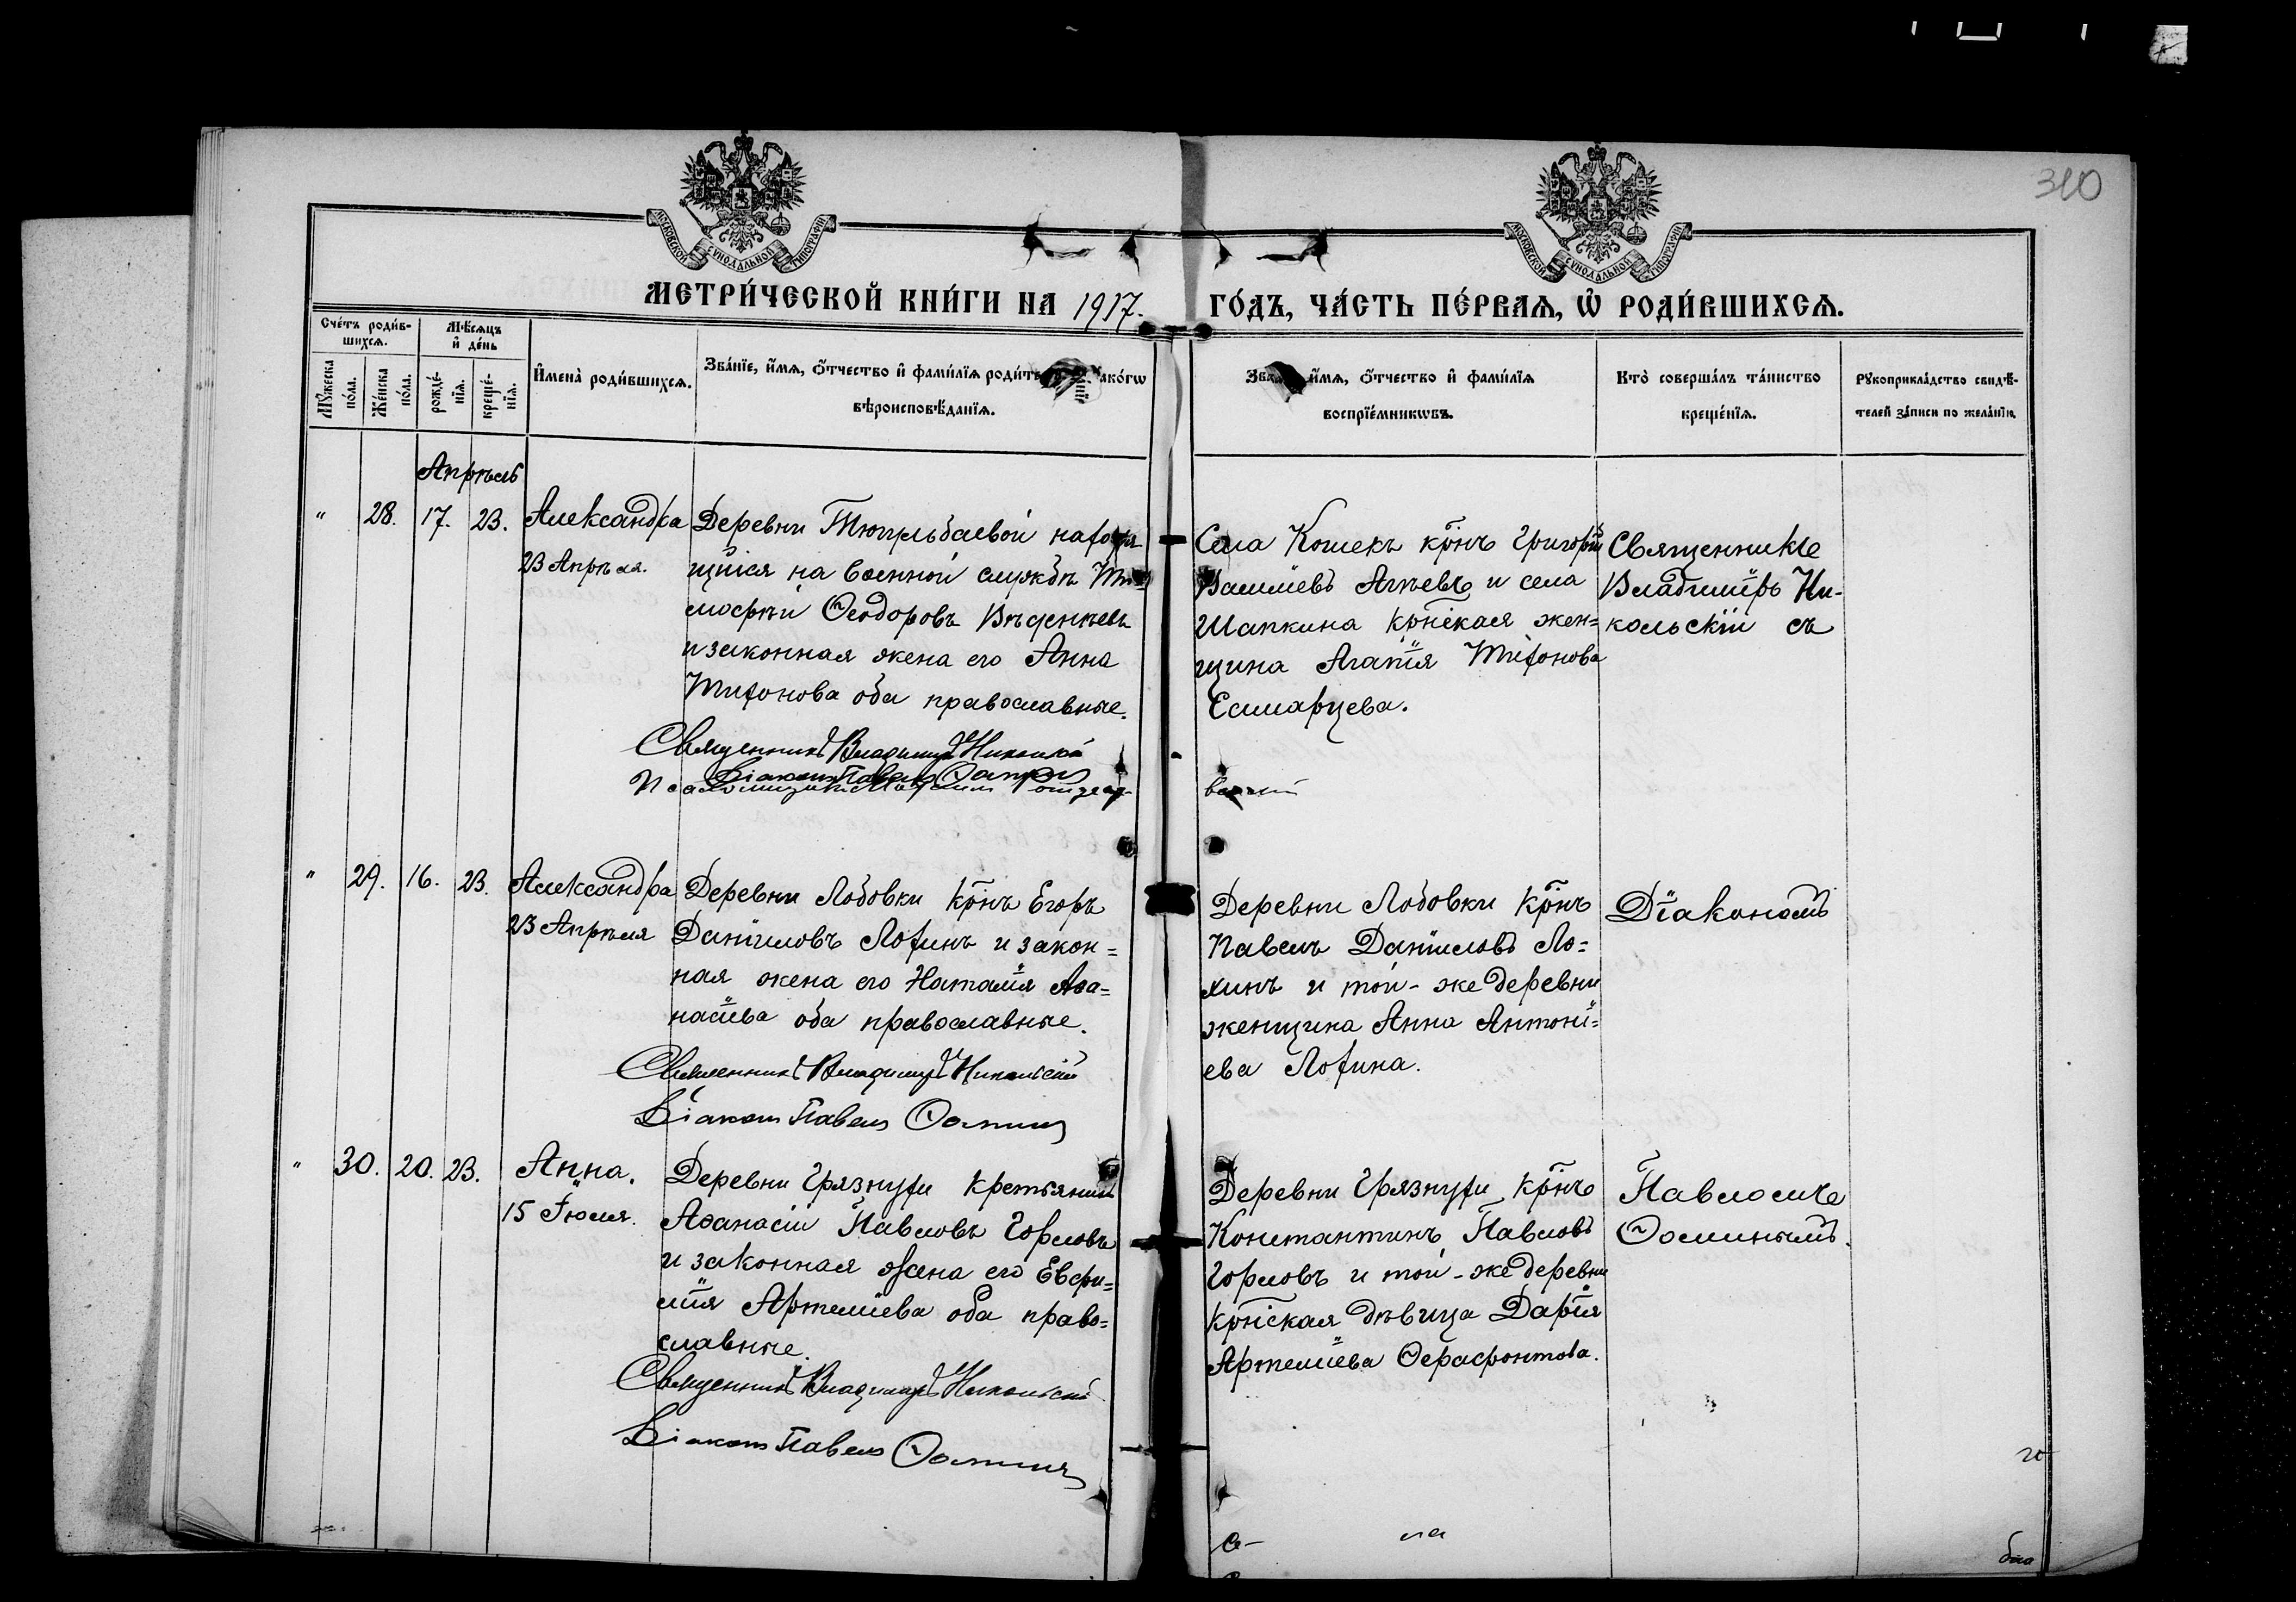 310
МОСКОВСКОЙ СѴНОДАЛЬНОЙ ТИПОГРАФІИ
МОСКОВСКОЙ СѴНОДАЛЬНОЙ ТИПОГРАФІИ
МЕТРИ́ЧЕСКОЙ КНИ́ГИ НА 1917. ГО́ДЪ, ЧА́СТЬ ПЕ́РВАѦ, Ѡ҆ РОДИ́ВШИХСѦ.
Сче́тъ роди́в-
шихсѧ.
Мѣ́сѧцъ
и҆ де́нь
Мꙋ́жеска
по́ла.
Же́нска
по́ла.
рожде́-
нїѧ.
креще́-
нїѧ.
И҆мена̀ роди́вшихсѧ.
Зва́нїе, и҆́мѧ, ѻ҆́тчество и҆ фами́лїѧ
вѣроисповѣ́данїѧ.
и҆́мѧ, ѻ҆́тчество и҆ фами́лїѧ
воспрїе́мникѡвъ.
Кто̀ соверша́лъ та́инство
креще́нїѧ.
Рꙋкоприкла́дство свидѣ́-
телей за́писи по жела́нїю.
Апрѣль
" 28. 17. 23. Александра
23 Апрѣля.
Деревни Тюгульбаевой находя-
щійся на военной службѣ Ти-
моѳей Ѳеодоровъ Вѣденѣевъ
и законная жена его Анна
Тихонова оба православные.
Священникъ Владиміръ Никольскій
Діаконъ Павелъ Ѳоминъ
Села Кошекъ кр͠нъ Григорій
Василіевъ Агѣевъ и села
Шапкина кр͠нская жен=
щина Агапія Тихонова
Есипарцева.
Священникъ
Владиміръ Ни-
кольскій съ
" 29. 16. 23. Александра
23 Апрѣля
Деревни Лобовки кр͠нъ Егоръ
Даніиловъ Лохинъ и закон=
ная жена его Наталія Аѳа=
насіева оба православные.
Священникъ Владиміръ Никольскій
Діаконъ Павелъ Ѳоминъ
Деревни Лобовки кр͠нъ
Павелъ Даніиловъ Ло=
хинъ и той-же деревни
женщина Анна Антоні=
ева Лохина.
Діакономъ
" 30. 20. 23. Анна.
15 Іюля.
Деревни Грязнухи крестьянинъ
Аѳанасій Павловъ Горловъ
и законная жена его Евфи=
мія Артеміева оба право=
славные.
Священникъ Владиміръ Никольскій
Діаконъ Павелъ Ѳоминъ
Деревни Грязнухи кр͠нъ
Константинъ Павловъ
Горловъ и той-же деревни
кр͠нская дѣвица Дарія
Артеміева Ѳерафонтова.
Павломъ
Ѳоминымъ.